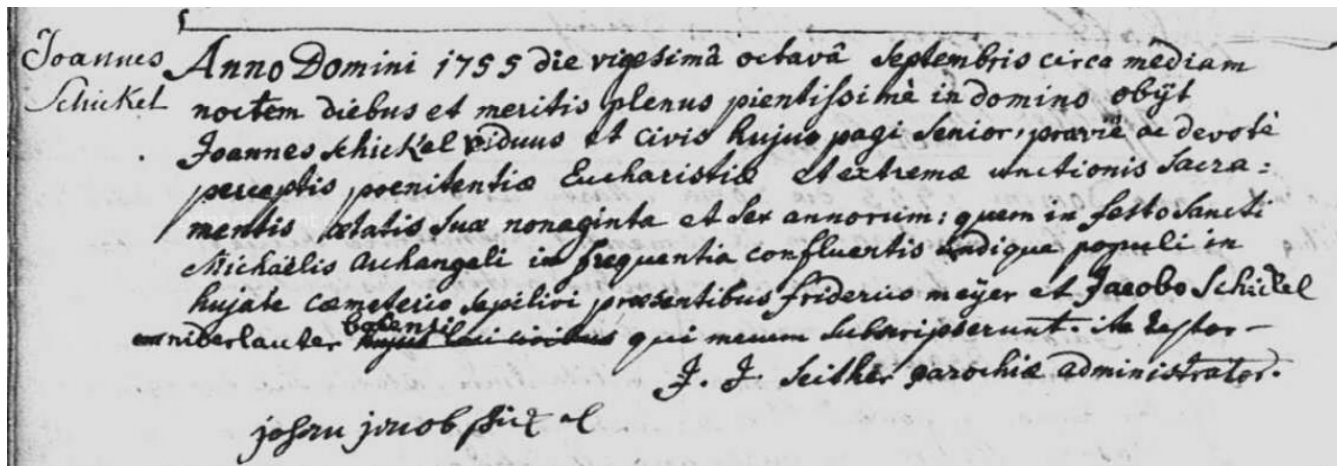 Joannes
Schickel
Anno Domini 1755 die vigesimâ octavâ Septembris circa mediam
noctem diebus et meritis plenus pientissimè in domino obijt
Joannes schickel viduus et civis hujus pagi senior, praviè ac devotè
perceptis poenitentiæ Eucharistiæ et extremæ unctionis Sacra=
mentis ætatis suæ nonaginta et sex annorum: quem in festo Sancti
Michaëlis Archangeli in frequentia confluentis undique populi in
hujate cæmeterio sepelivi præsentibus friderico meÿer et Jacobo Schickel
niderlauter bacensi hujus loci civibus qui mecum subscripserunt. ita testor
J. J. Seither parochiæ administrator.
johan jacob